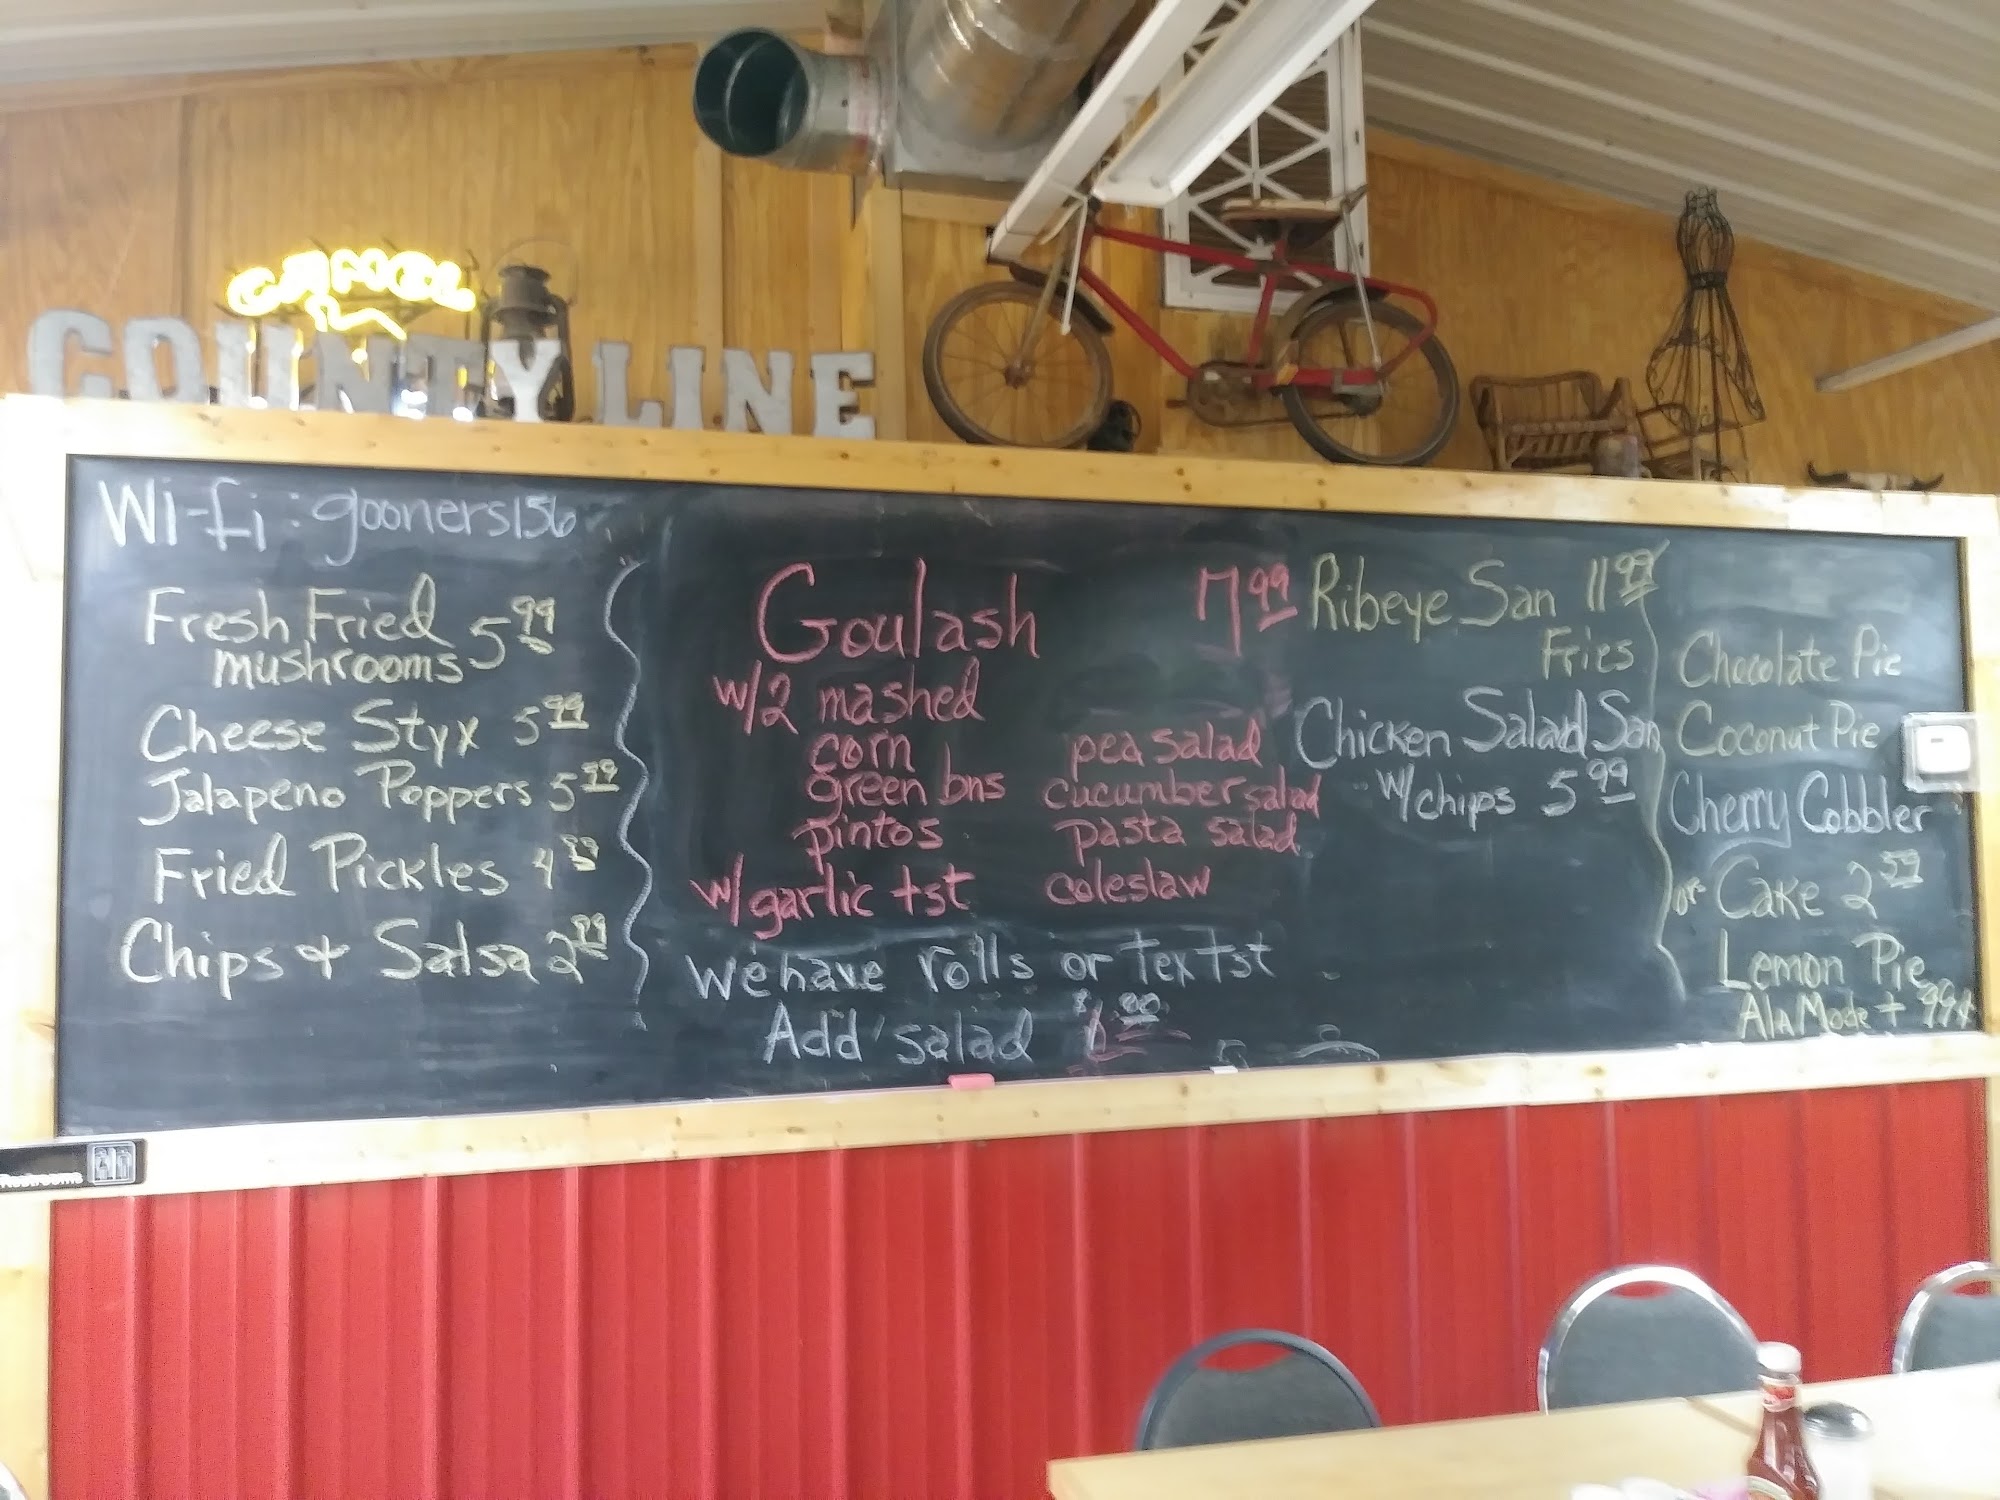 CAMEL
COUNTY LINE
Wi-fi: gooners156
Fresh Fried
mushrooms 5.99
Cheese Styx 5.99
Jalapeno Poppers 5.99
Fried Pickles 4.99
Chips & Salsa 2.99
Goulash 7.99
w/2 mashed
corn
green bns
pintos
w/ garlic tst
pea salad
cucumber salad
pasta salad
coleslaw
We have rolls or Tex Tst
Add salad
Ribeye San 11.99
Fries
Chicken Salad San
w/chips 5.99
Chocolate Pie
Coconut Pie
Cherry Cobbler
or Cake 2.59
Lemon Pie
AlaMode + 99¢
Restrooms